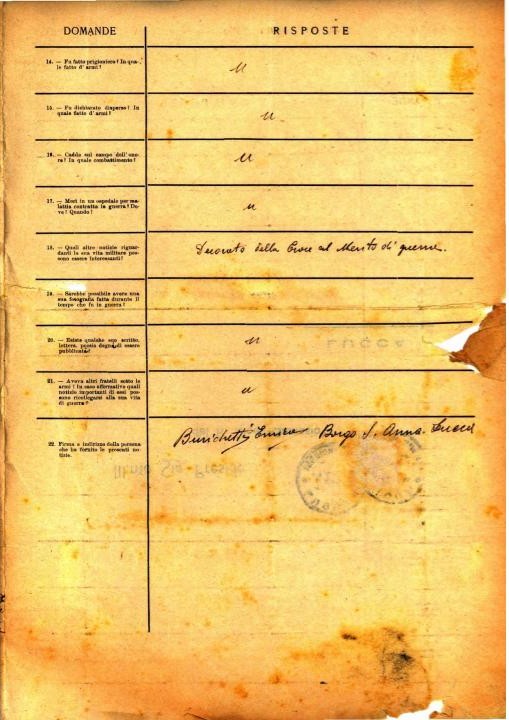 DOMANDE RISPOSTE
14. — Fu fatto prigioniero? In qua-
le fatto d'armi?
15. — Fu dichiarato disperso? In
quale fatto d'armi?
16. — Cadde sul campo dell'ono-
re? In quale combattimento?
17. — Morì in un ospedale per ma-
lattia contratta in guerra? Do-
ve? Quando?
18. — Quali altre notizie riguar-
danti la sua vita militare pos-
sono essere interessanti?
Decorato della Croce al Merito di guerra.
19. — Sarebbe possibile avere una
sua fotografia fatta durante il
tempo che fu in guerra?
20. — Esiste qualche suo scritto,
lettera, poesia degna di essere
pubblicata?
LUCCA
21. — Aveva altri fratelli sotto le
armi? In caso affermativo quali
notizie importanti di essi pos-
sono ricollegarsi alla sua vita
di guerra?
22. Firma e indirizzo della persona
che ha fornito le presenti no-
tizie.
Enrico Borgo S. Anna. Lucca